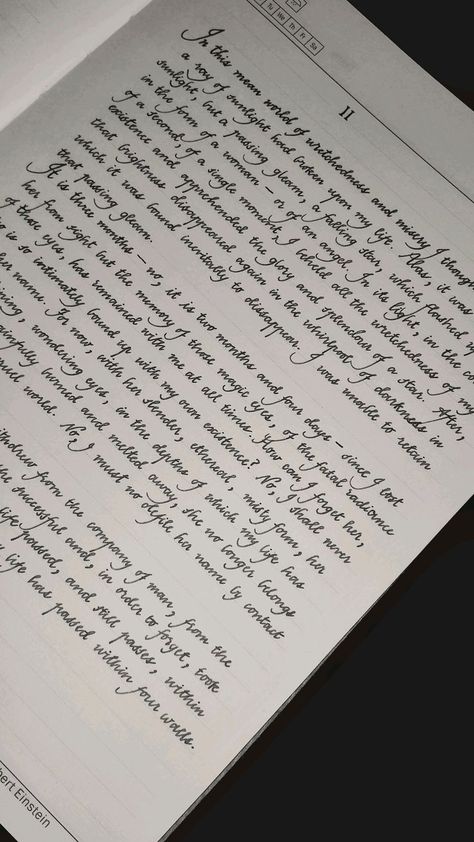 Tu We Th Fr Sa
11
In this mean world of wretchedness and misery I thought
a ray of sunlight had broken upon my life. Alas, it was
sunlight, but a passing gleam, a falling star, which flashed
in the form of a woman – or of an angel. In its light, in the
of a second, of a single moment, I beheld all the wretchedness of my
existence and apprehended the glory and splendour of a star. After,
that brightness disappeared again in the whirlpool of darkness in
which it was bound inevitably to disappear. I was unable to retain
that passing gleam.
It is three months – no, it is two months and four days – since I lost
her from sight but the memory of those magic eyes, of the fatal radiance
of those eyes, has remained with me at all times. How can I forget her,
is so intimately bound up with my own existence? No, I shall never
her name. For now, with her slender, ethereal, misty form, her
wondering eyes, in the depths of which my life has
burned and melted away, she no longer belongs
world. No, I must not defile her name by contact
from the company of man, from the
successful and, in order to forget, took
life passed, and still passes, within
life has passed within four walls.
Einstein